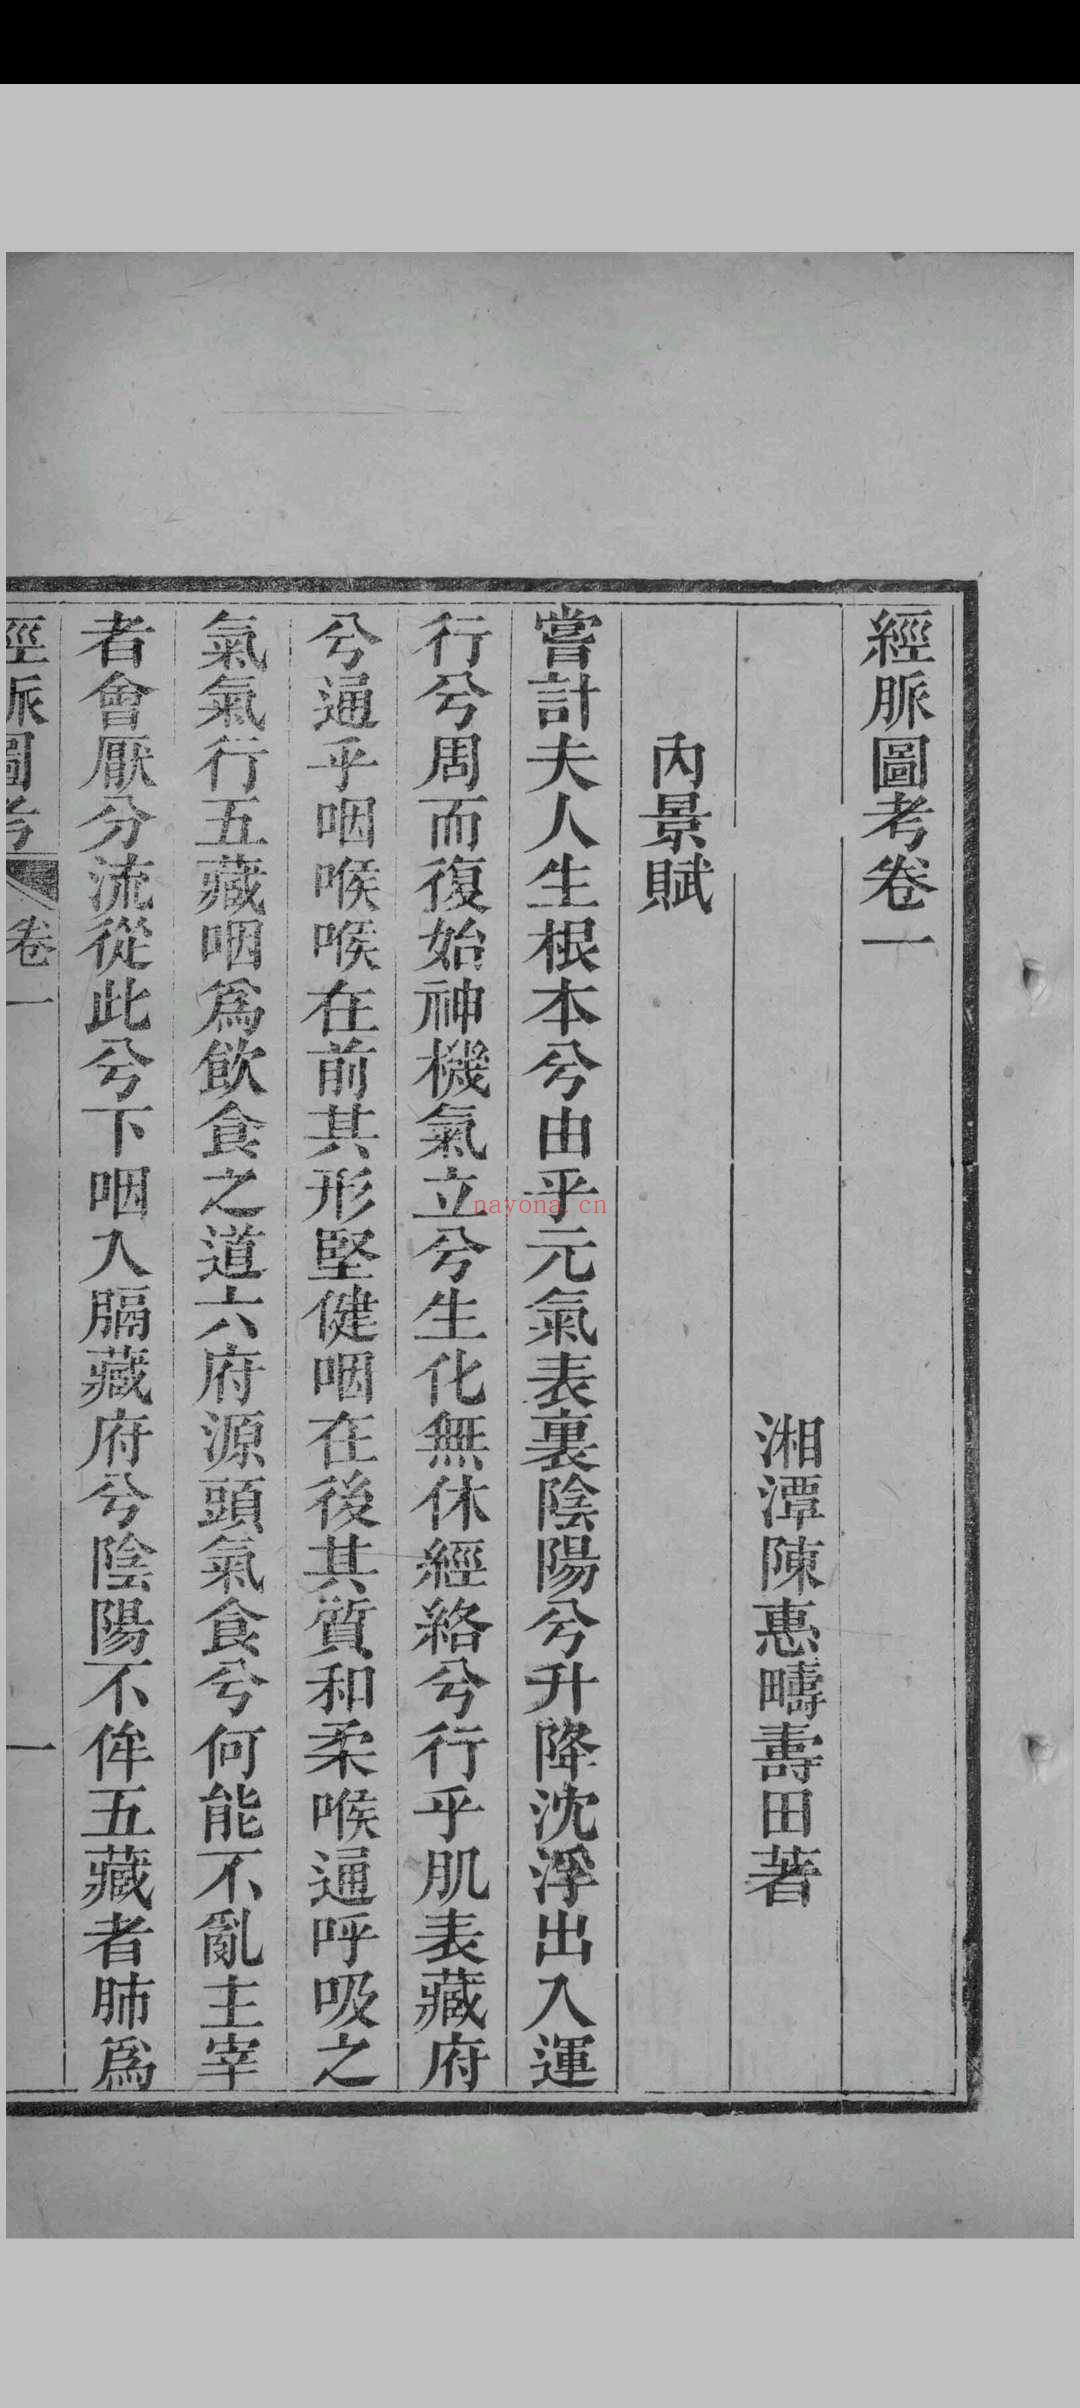 經脈圖考卷一
湘潭陳惠疇壽田著
內景賦
嘗計夫人生根本兮由乎元氣表裏陰陽兮升降沈浮出入運
行兮周而復始神機氣立兮生化無休經絡兮行乎肌表藏府
兮通乎咽喉喉在前其形堅健咽在後其質和柔喉通呼吸之
氣氣行五藏咽爲飲食之道六府源頭氣食兮何能不亂主宰
者會厭分流從此兮下咽入膈藏府兮陰陽不侔五藏者肺爲
經脈圖考 卷一 一
nayona.cn